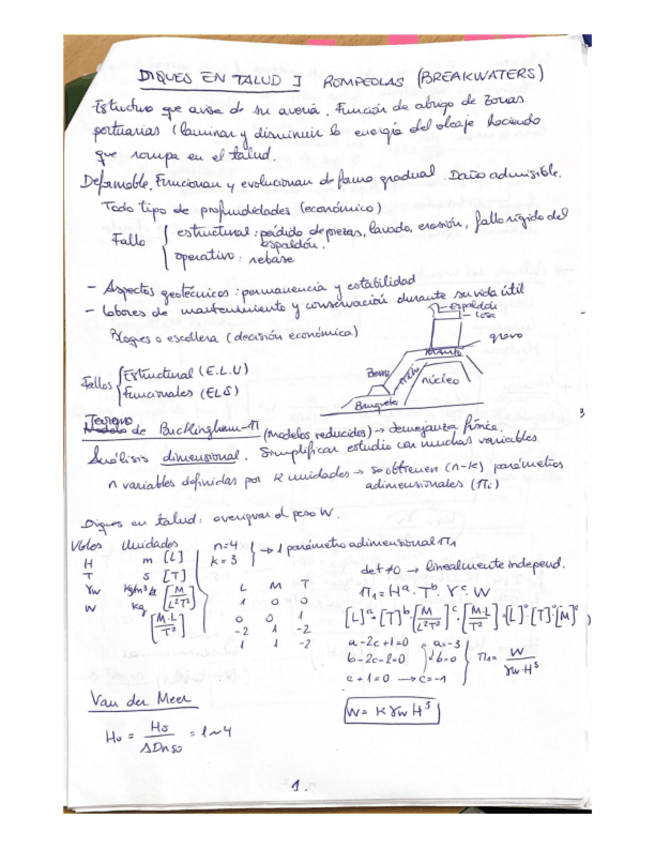 DIQUES EN TALUD I ROMPEOLAS (BREAKWATERS)
Estructura que avisa de su avería. Función de abrigo de zonas
portuarias (laminar y disminuir la energía del oleaje haciendo
que rompa en el talud.
Deformable. Funcionan y evolucionan de forma gradual. Daño admisible.
Todo tipo de profundidades (económico)
Fallo { estructural: pérdida de piezas, lavado, erosión, fallo rígido del
espaldón.
operativo: rebase
- Aspectos geotécnicos: permanencia y estabilidad
- labores de mantenimiento y conservación durante su vida útil
Bloques o escollera (decisión económica)
Espaldón
losa
grava
Manto
Berma
núcleo
Banqueta
Fallos { Estructural (E.L.U)
Funcionales (ELS)
Teorema
de Buckingham-π (modelos reducidos) → semejanza física.
Análisis dimensional. Simplifican estudio con muchas variables
n variables definidas por k unidades → se obtienen (n-k) parámetros
adimensionales (πi)
Diques en talud: averiguar el peso W.
Vbles Unidades
H m [L]
T s [T]
γw [M/L²T²]
W kg [M·L/T²]
n=4
k=3 } → 1 parámetro adimensional π1
L M T
1 0 0
0 0 1
-2 1 -2
1 1 -2
det ≠0 → linealmente independ.
π1 = Hᵃ · Tᵇ · γᶜ · W
[L]ᵃ · [T]ᵇ · [M/L²T²]ᶜ · [M·L/T²] = [L]° · [T]° [M]°
a-2c+1=0 a=-3
b-2c-2=0 b=0
c+1=0 → c=-1
π1 = W / γw·H³
W = K γw H³
Van der Meer
Ho = Hs / ΔDn50 = 1~4
1.